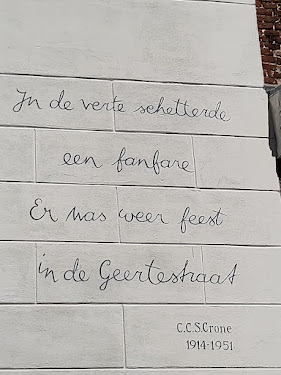 In de verte schetterde
een fanfare
Er was weer feest
in de Geertestraat
C.C.S. Crone
1914-1951